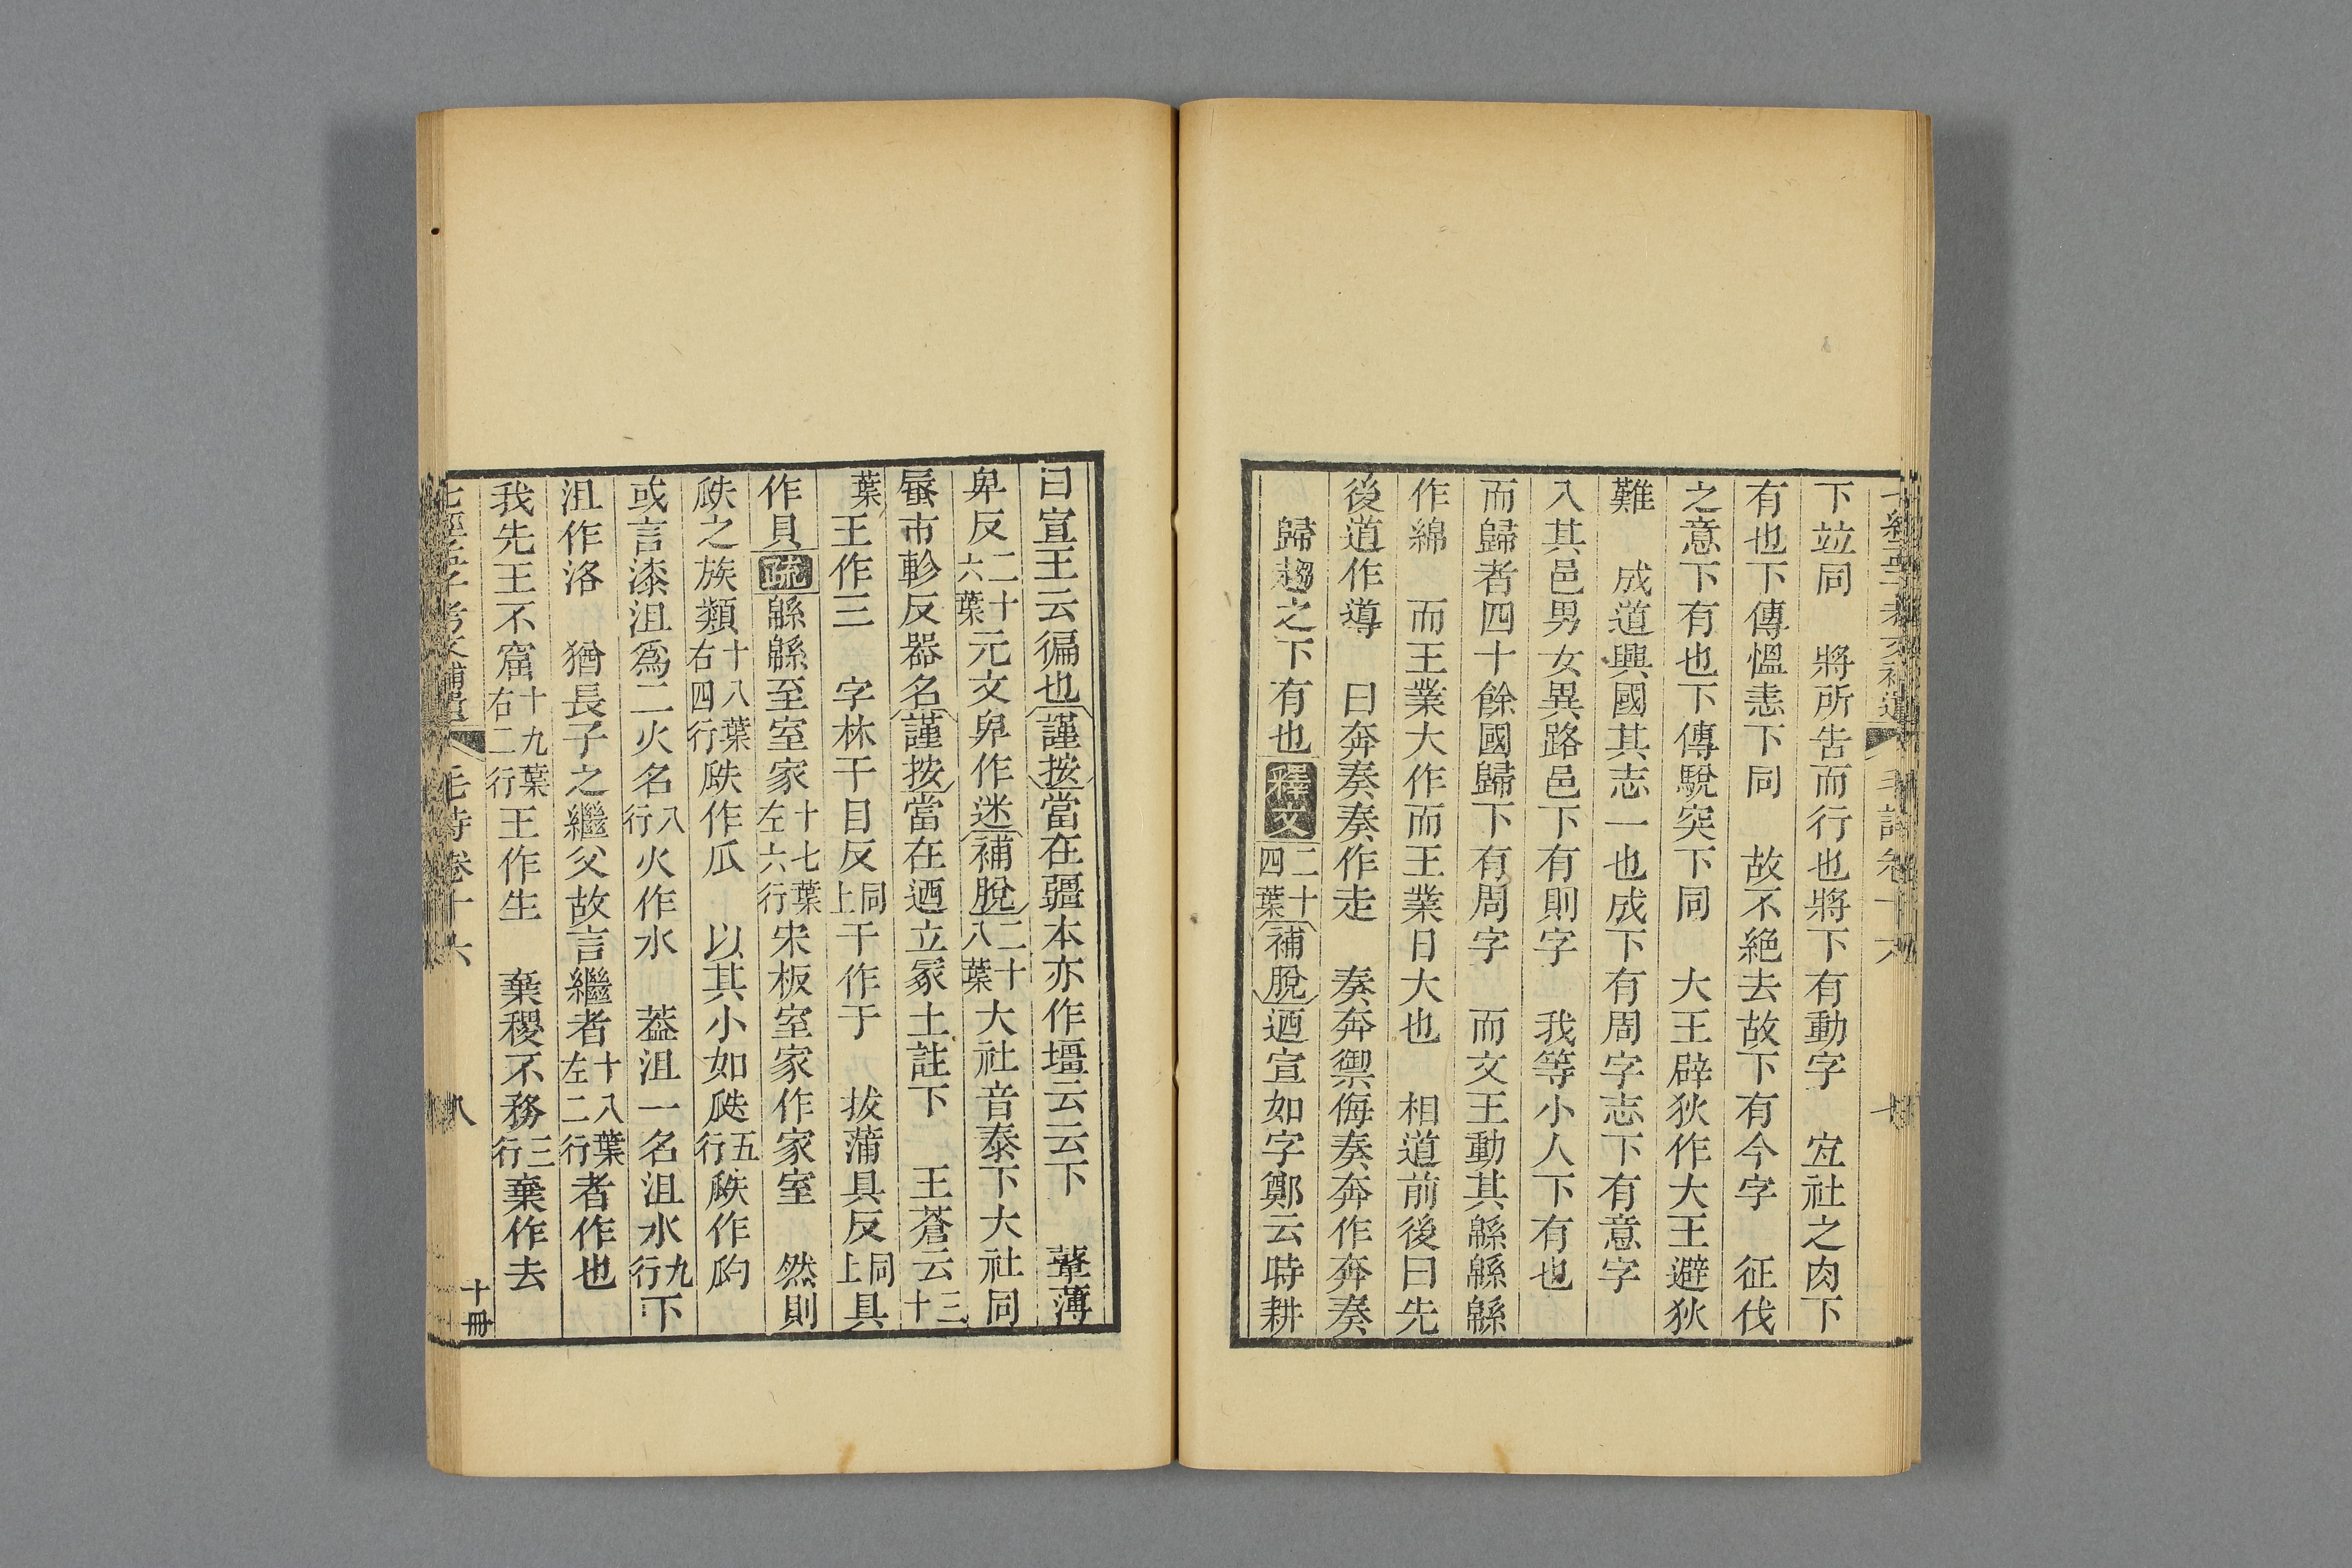 七經孟子考文補遺 毛詩卷十六 七
下竝同　將所告而行也將下有動字　宐社之肉下
有也下傳慍恚下同　故不絕去故下有今字　征伐
之意下有也下傳駾突下同　大王辟狄作大王避狄
難　成道興國其志一也成下有周字志下有意字
入其邑男女異路邑下有則字　我等小人下有也
而歸者四十餘國歸下有周字　而文王動其緜緜緜
作綿　而王業大作而王業日大也　相道前後曰先
後道作導　曰奔奏奏作走　奏奔禦侮奏奔作奔奏
歸趨之下有也釋文二十四葉補脫迺宣如字鄭云時耕
曰宣王云徧也謹按當在疆本亦作壃云云下　鞏薄
卑反二十六葉元文卑作迷補脫二十八葉大社音泰下大社同
蜃市軫反器名謹按當在迺立冢土註下　王蒼云三十
葉王作三　字林干目反同上干作于　拔蒲具反同上具
作貝疏緜緜至室家十七葉左六行宋板室家作家室　然則
瓞之族類十八葉右四行瓞作瓜　以其小如瓞五行瓞作瓝
或言漆沮爲二火名八行火作水　葢沮一名沮水九行下
沮作洛　猶長子之繼父故言繼者十八葉左二行者作也
我先王不窋十九葉右二行王作生　棄稷不務三行棄作去
七經孟子考文補遺 毛詩卷十六 八 十冊